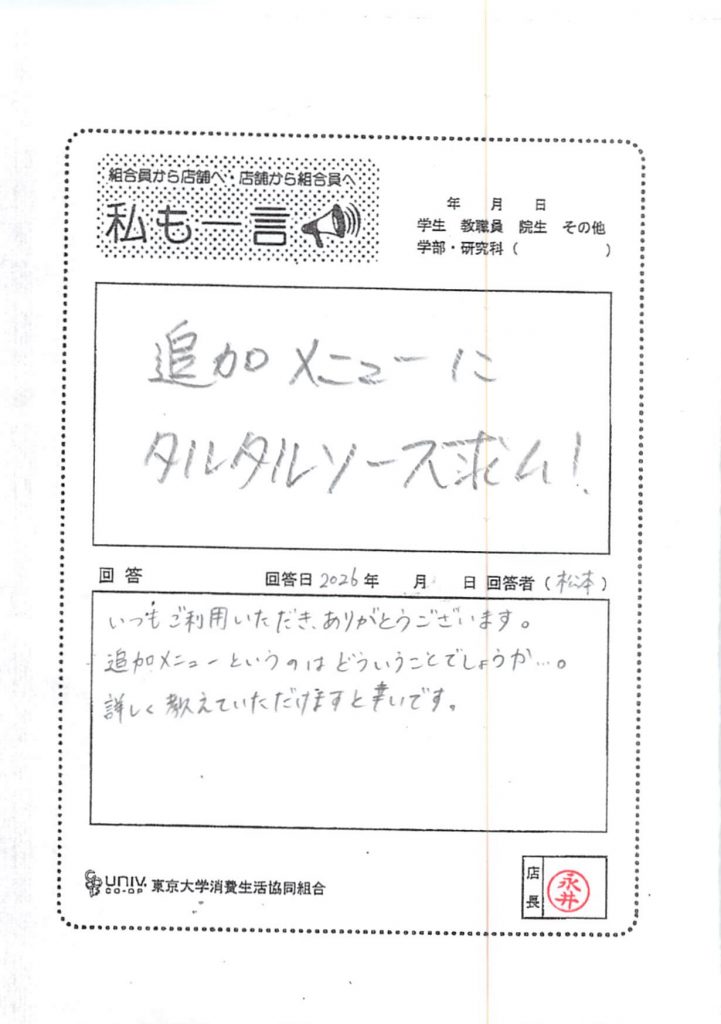 組合員から店舗へ・店舗から組合員へ
私も一言
年 月 日
学生 教職員 院生 その他
学部・研究科( )
追加メニューに
タルタルソース求ム!
回答 回答日2026年 月 日 回答者(松本)
いつもご利用いただき、ありがとうございます。
追加メニューというのはどういうことでしょうか…。
詳しく教えていただけますと幸いです。
UNIV. CO-OP 東京大学消費生活協同組合
店長 永井